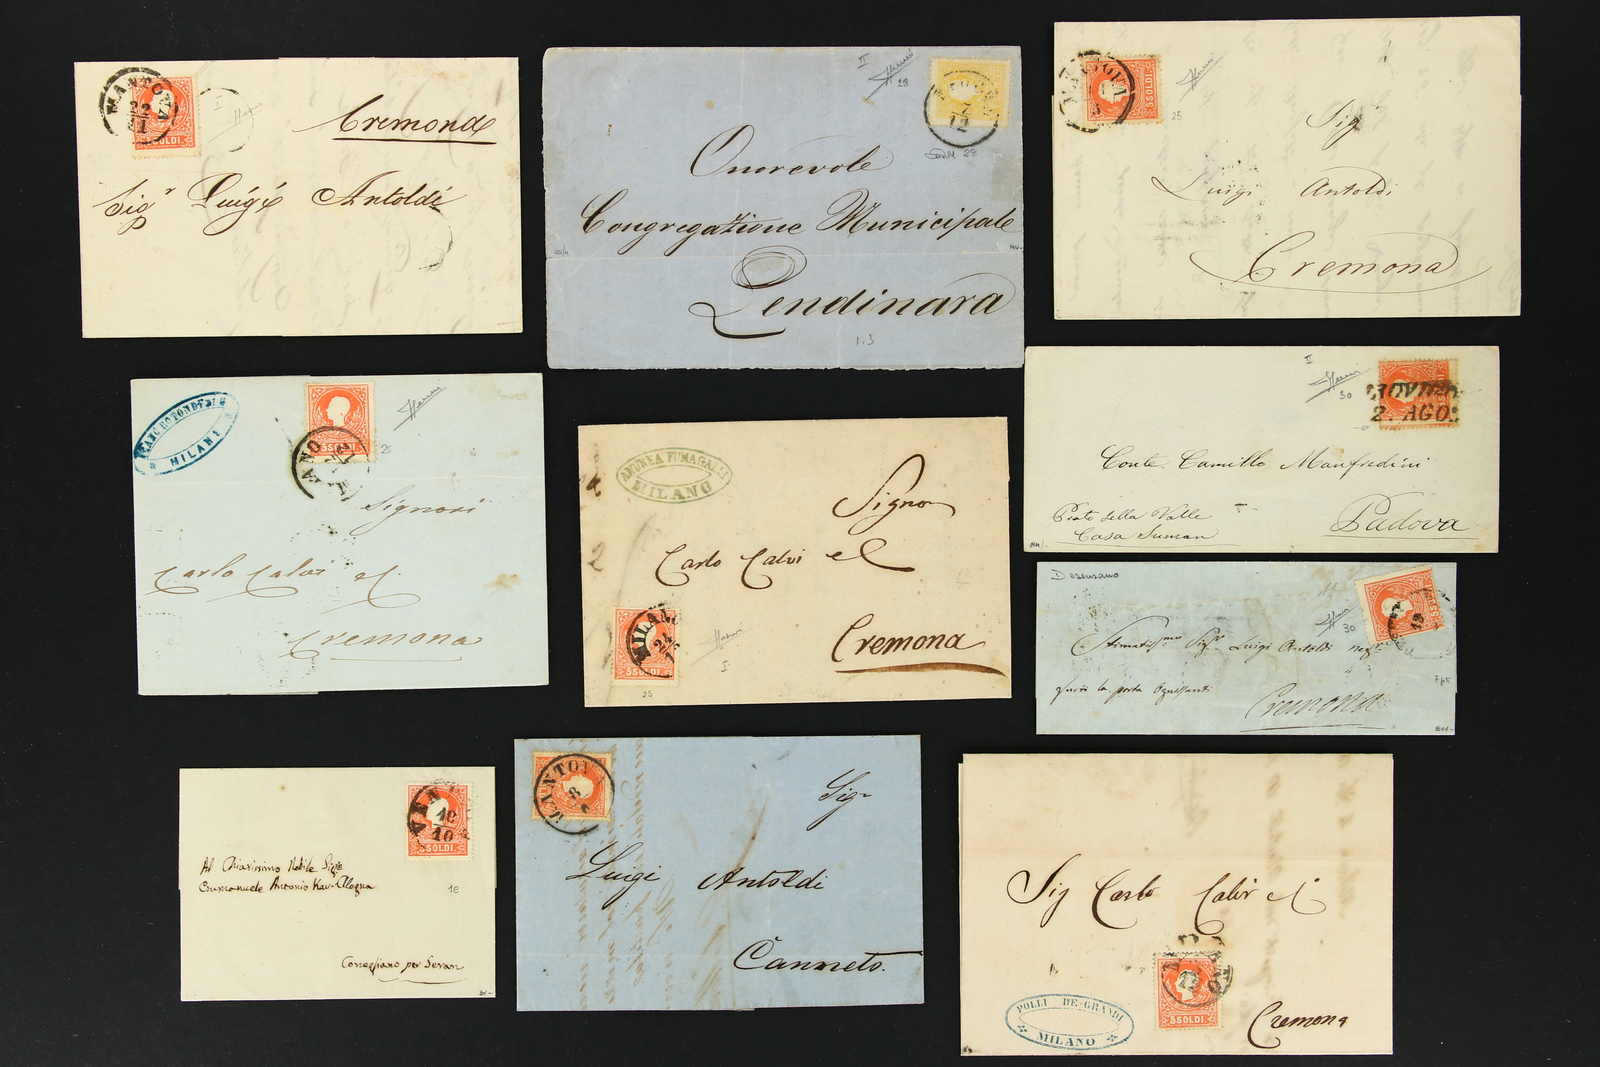 MANTOVA
22
1
5 SOLDI
I
Cremona
Sig.r Luigi Antoldi
II
28
7
12
Onorevole
Congregazione Municipale
Lendinara
1.3
5 SOLDI
25
Sig.r
Luigi Antoldi
Cremona
MILANO
5 SOLDI
Signori
Carlo Calvi e C.
Cremona
ANDREA FUMAGALLI
MILANO
Signor
Carlo Calvi e C
MILANO
24
5 SOLDI
25
I
Cremona
I
30
2. AGO.
Conte Camillo Manfredini
Prato della Valle
Casa Suman
Padova
Desenzano
30
19
Sig.r Luigi Antoldi
Cremona
VEN
10
10
5 SOLDI
Al Chiarissimo Nobile Sig.r
Emanuele Antonio
Conegliano per
MANTOV
8
Sig.r
Luigi Antoldi
Canneto.
Sig Carlo Calvi e C.
12
5 SOLDI
POLLI DE-GRANDI
MILANO
Cremona